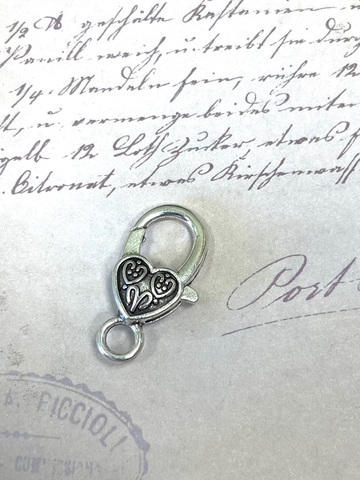 1/2 ℔ geschälte Kastanien
Vanill weich, u. treibt sie durch
1/4. Mandeln fein, rühre 12
u. vermenge beides mitein
gelb 12 Loth Zucker, etwas
Citronat, etwas Kirschenwass
Port
FICCIOLI
COM.